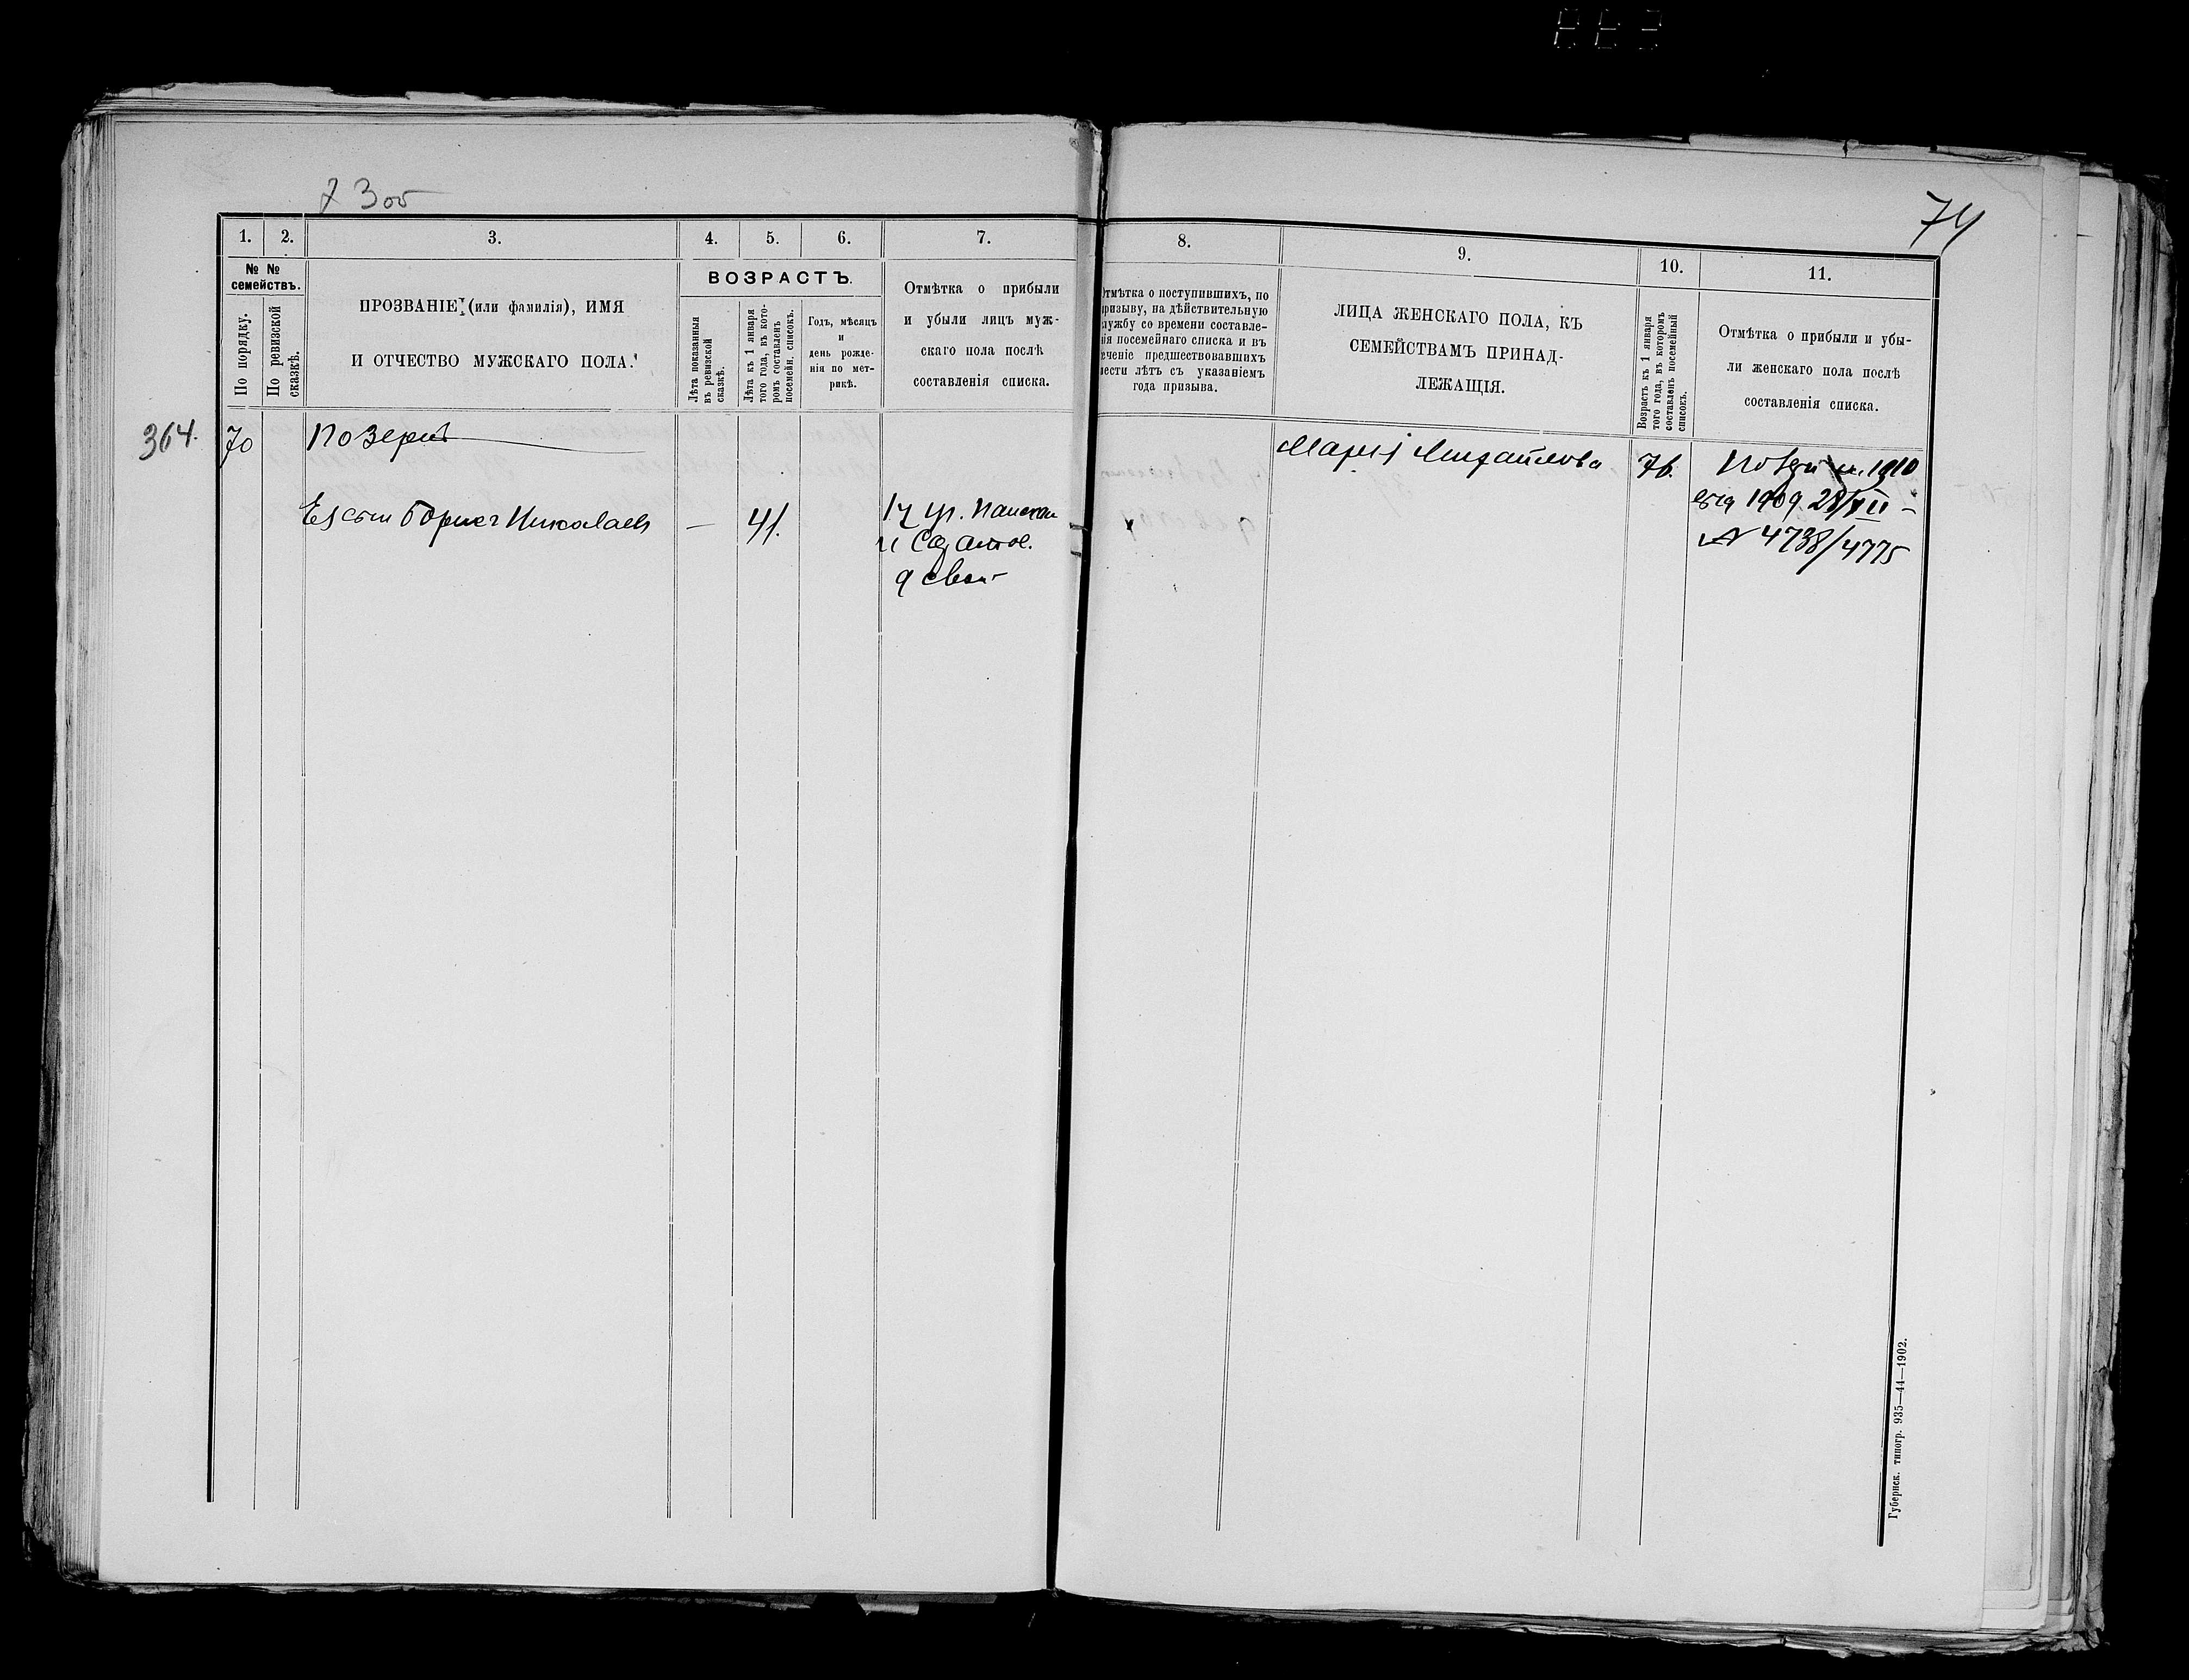 74
1.
2.
3.
4.
5.
6.
7.
8.
9.
10.
11.
№ №
семействъ.
По порядку.
По ревизской
сказкѣ.
ПРОЗВАНІЕ (или фамилія), ИМЯ
И ОТЧЕСТВО МУЖСКАГО ПОЛА.
ВОЗРАСТЪ.
Лѣта показанныя
въ ревизской
сказкѣ.
Лѣта къ 1 января
того года, въ кото-
ромъ составленъ
посемейн. списокъ.
Годъ, мѣсяцъ
и
день рожде-
нія по мет-
рикѣ.
Отмѣтка о прибыли
и убыли лицъ муж-
скаго пола послѣ
составленія списка.
отмѣтка о поступившихъ, по
призыву, на дѣйствительную
службу со времени составле-
нія посемейнаго списка и въ
теченіе предшествовавшихъ
шести лѣтъ съ указаніемъ
года призыва.
ЛИЦА ЖЕНСКАГО ПОЛА, КЪ
СЕМЕЙСТВАМЪ ПРИНАД-
ЛЕЖАЩІЯ.
Возрастъ къ 1 января
того года, въ которомъ
составленъ посемейный
списокъ.
Отмѣтка о прибыли и убы-
ли женскаго пола послѣ
составленія списка.
364.
70
Позернъ
Марія Михайлова
76.
1910
Ея сын Борис Николаев
—
41.
1909 28/XII
№ 4738/4775
Губернск. типогр. 935—44—1902.